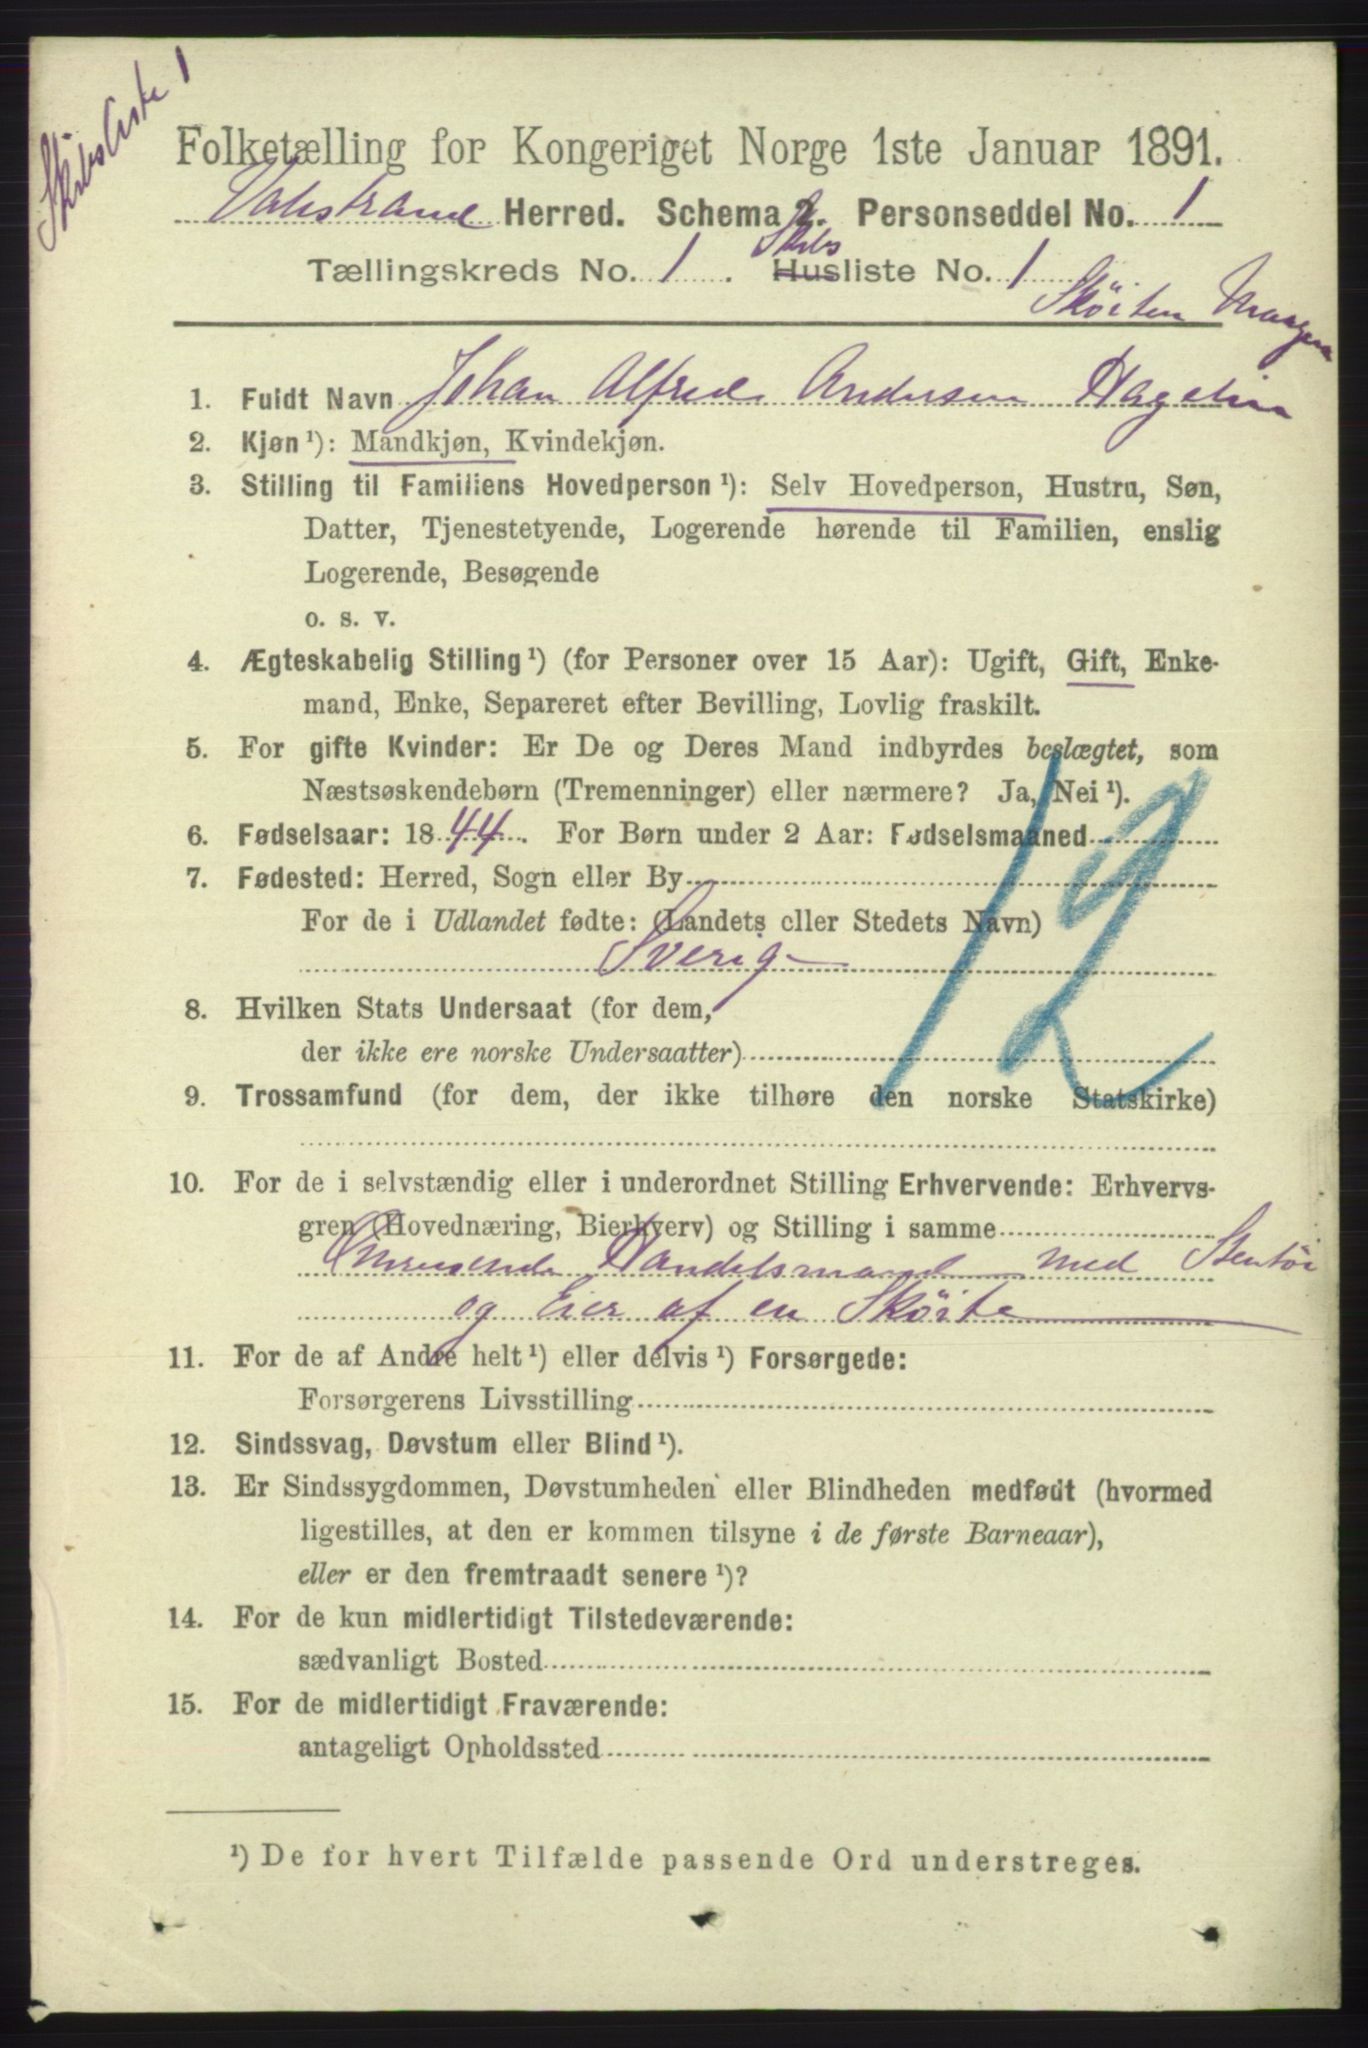 Skibsliste 1
Folketælling for Kongeriget Norge 1ste Januar 1891.
Vatsstrand Herred. Schema 2. Personseddel No. 1
Tællingskreds No. 1. Husliste No. 1
Skibs
Sköiten Maagen
1. Fuldt Navn Johan Alfred Andersen Hagelin
2. Kjøn ¹): Mandkjøn, Kvindekjøn.
3. Stilling til Familiens Hovedperson ¹): Selv Hovedperson, Hustru, Søn,
Datter, Tjenestetyende, Logerende hørende til Familien, enslig
Logerende, Besøgende
o. s. v.
4. Ægteskabelig Stilling ¹) (for Personer over 15 Aar): Ugift, Gift, Enke-
mand, Enke, Separeret efter Bevilling, Lovlig fraskilt.
5. For gifte Kvinder: Er De og Deres Mand indbyrdes beslægtet, som
Næstsøskendebørn (Tremenninger) eller nærmere? Ja, Nei ¹).
6. Fødselsaar: 1844. For Børn under 2 Aar: Fødselsmaaned
7. Fødested: Herred, Sogn eller By
For de i Udlandet fødte: (Landets eller Stedets Navn)
Sverig
12
8. Hvilken Stats Undersaat (for dem,
der ikke ere norske Undersaatter)
9. Trossamfund (for dem, der ikke tilhøre den norske Statskirke)
10. For de i selvstændig eller i underordnet Stilling Erhvervende: Erhvervs-
gren (Hovednæring, Bierhverv) og Stilling i samme
Omreisende Handelsmand med Stentöi
og Eier af en Sköite
11. For de af Andre helt ¹) eller delvis ¹) Forsørgede:
Forsørgerens Livsstilling
12. Sindssvag, Døvstum eller Blind ¹).
13. Er Sindssygdommen, Døvstumheden eller Blindheden medfødt (hvormed
ligestilles, at den er kommen tilsyne i de første Barneaar),
eller er den fremtraadt senere ¹)?
14. For de kun midlertidigt Tilstedeværende:
sædvanligt Bosted
15. For de midlertidigt Fraværende:
antageligt Opholdssted
¹) De for hvert Tilfælde passende Ord understreges.